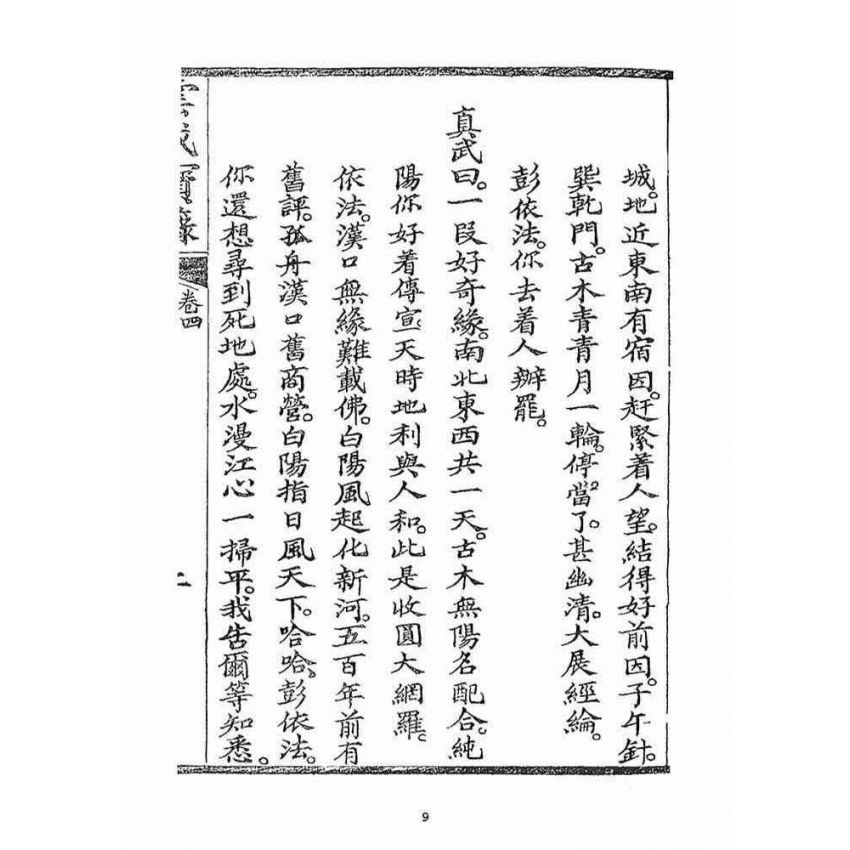 城。地近東南有宿因。赶緊着人望。結得好前因。子午針。
巽乾門。古木青青月一輪。停當了。甚幽清。大展經綸。
彭依法。你去着人辦罷。
真武曰。一段好奇緣。南北東西共一天。古木無陽名配合。純
陽你好着傳宣。天時地利與人和。此是收圓大網羅。
依法。漢口無緣難載佛。白陽風起化新河。五百年前有
舊評。孤舟漢口舊商營。白陽指日風天下。哈哈。彭依法。
你還想尋到死地處。水漫江心一掃平。我告爾等知悉。
卷四
二
9